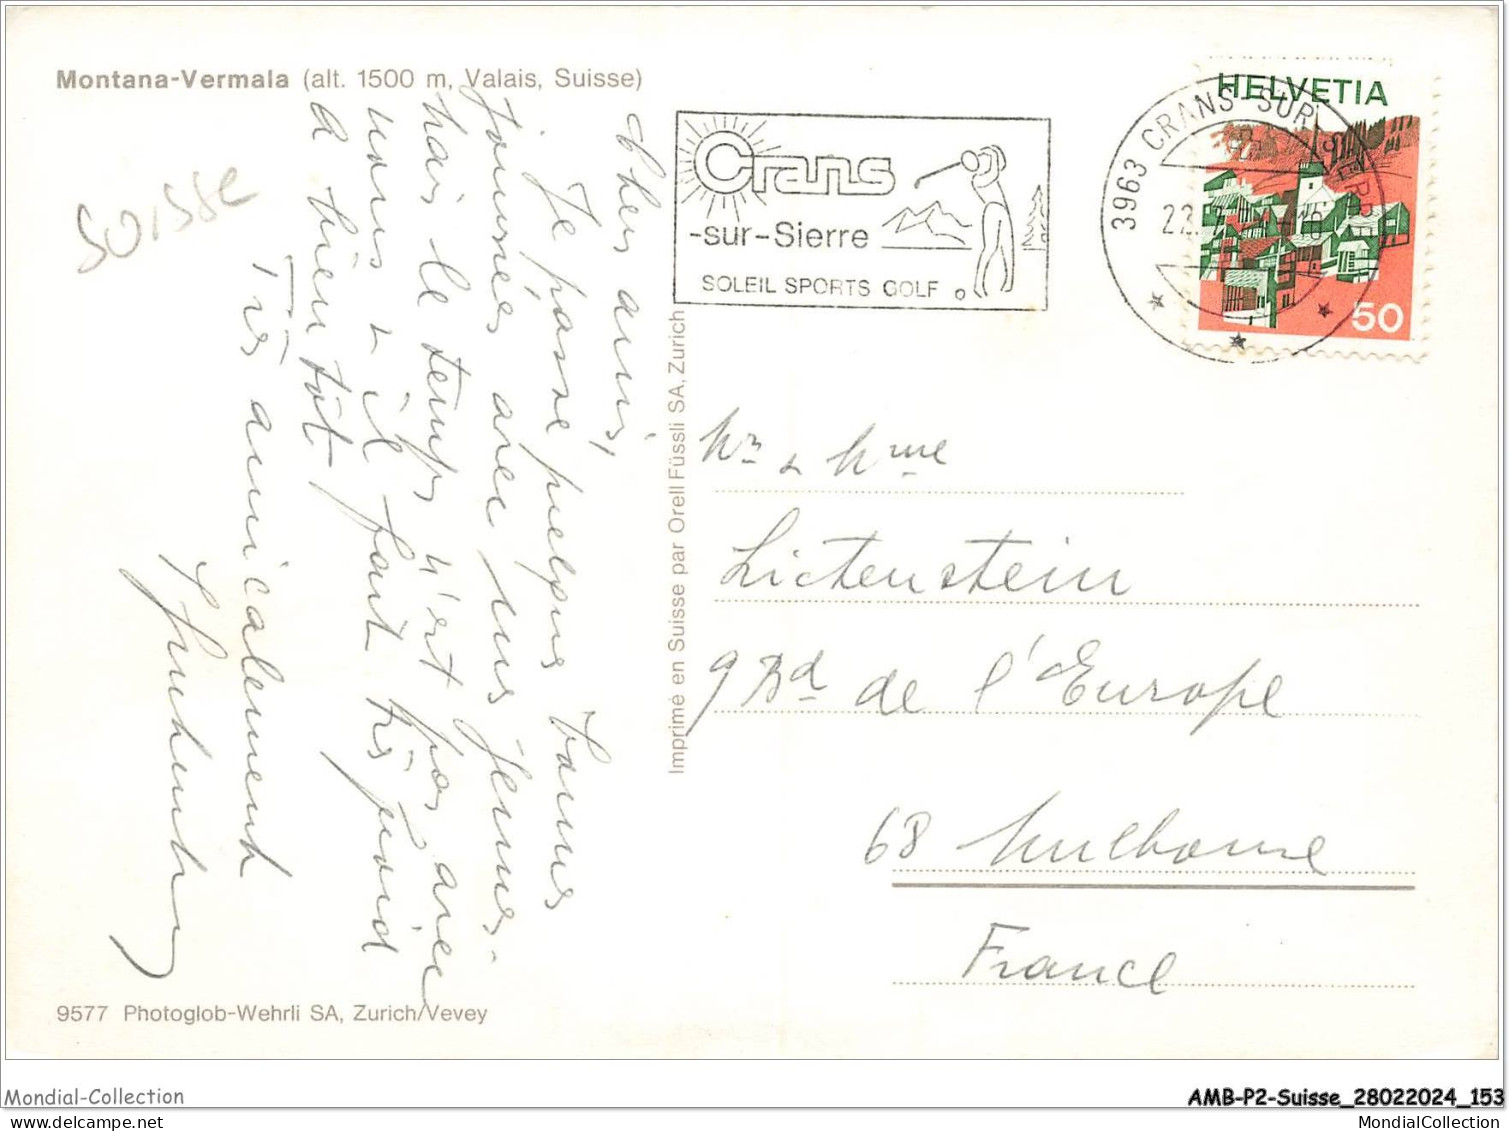 Montana-Vermala (alt. 1500 m, Valais, Suisse)
SUISSE
Chers amis,
Je passe quelques bonnes
journées avec mes jeunes.
Mais le temps n'est pas avec
nous & il fait très froid
à bientôt
Très amicalement
9577 Photoglob-Wehrli SA, Zurich/Vevey
Imprimé en Suisse par Orell Füssli SA, Zurich
Crans
-sur-Sierre
SOLEIL SPORTS GOLF
3963 CRANS-SUR-SIERRE
HELVETIA
50
Mr & Mme
Lictenstein
9 Bd de l'Europe
68 Mulhouse
France
Mondial-Collection
AMB-P2-Suisse_28022024_153
MondialCollection.com